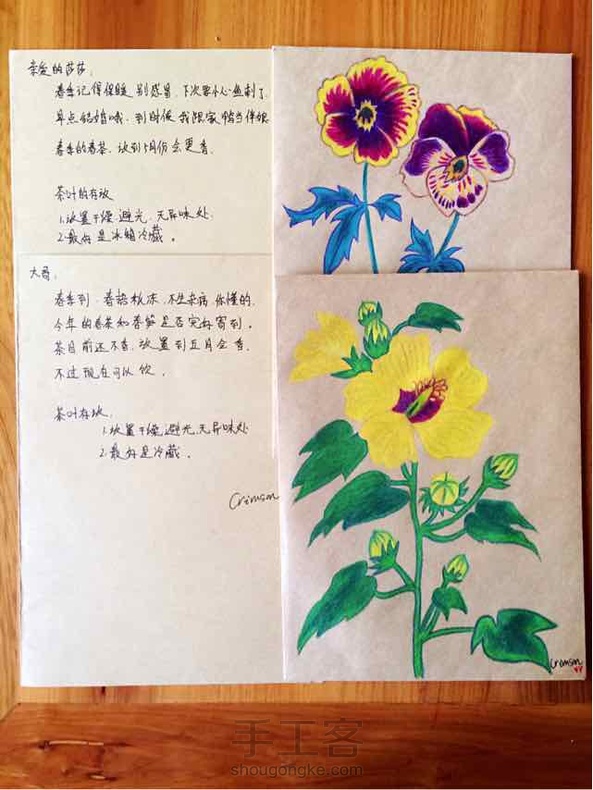 亲爱的莎莎：
春季记得保暖，别感冒，下次要小心鱼刺了。
早点结婚哦，到时候我跟家猪当伴娘
春季的春茶，放到5月份会更香。
茶叶的存放
1.放置干燥、避光、无异味处
2.最好是冰箱冷藏。
大哥：
春季到，春捂秋冻，不生杂病，你懂的。
今年的春茶和春笋是否完好寄到。
茶目前还不香，放置到五月会香，
不过现在可以饮。
茶叶存放：
1.放置干燥、避光、无异味处
2.最好是冷藏。
Crimson
Crimson
手工客
shougongke.com